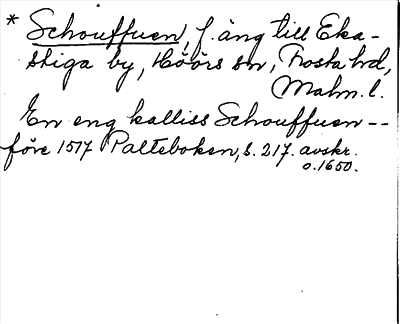 * Schouffuen, f. äng till Eka-
stiga by, Höörs sn, Frosta hd,
Malm. l.
En eng kalliss Schouffuen --
före 1517 Palteboken, s. 217. avskr.
o. 1650.